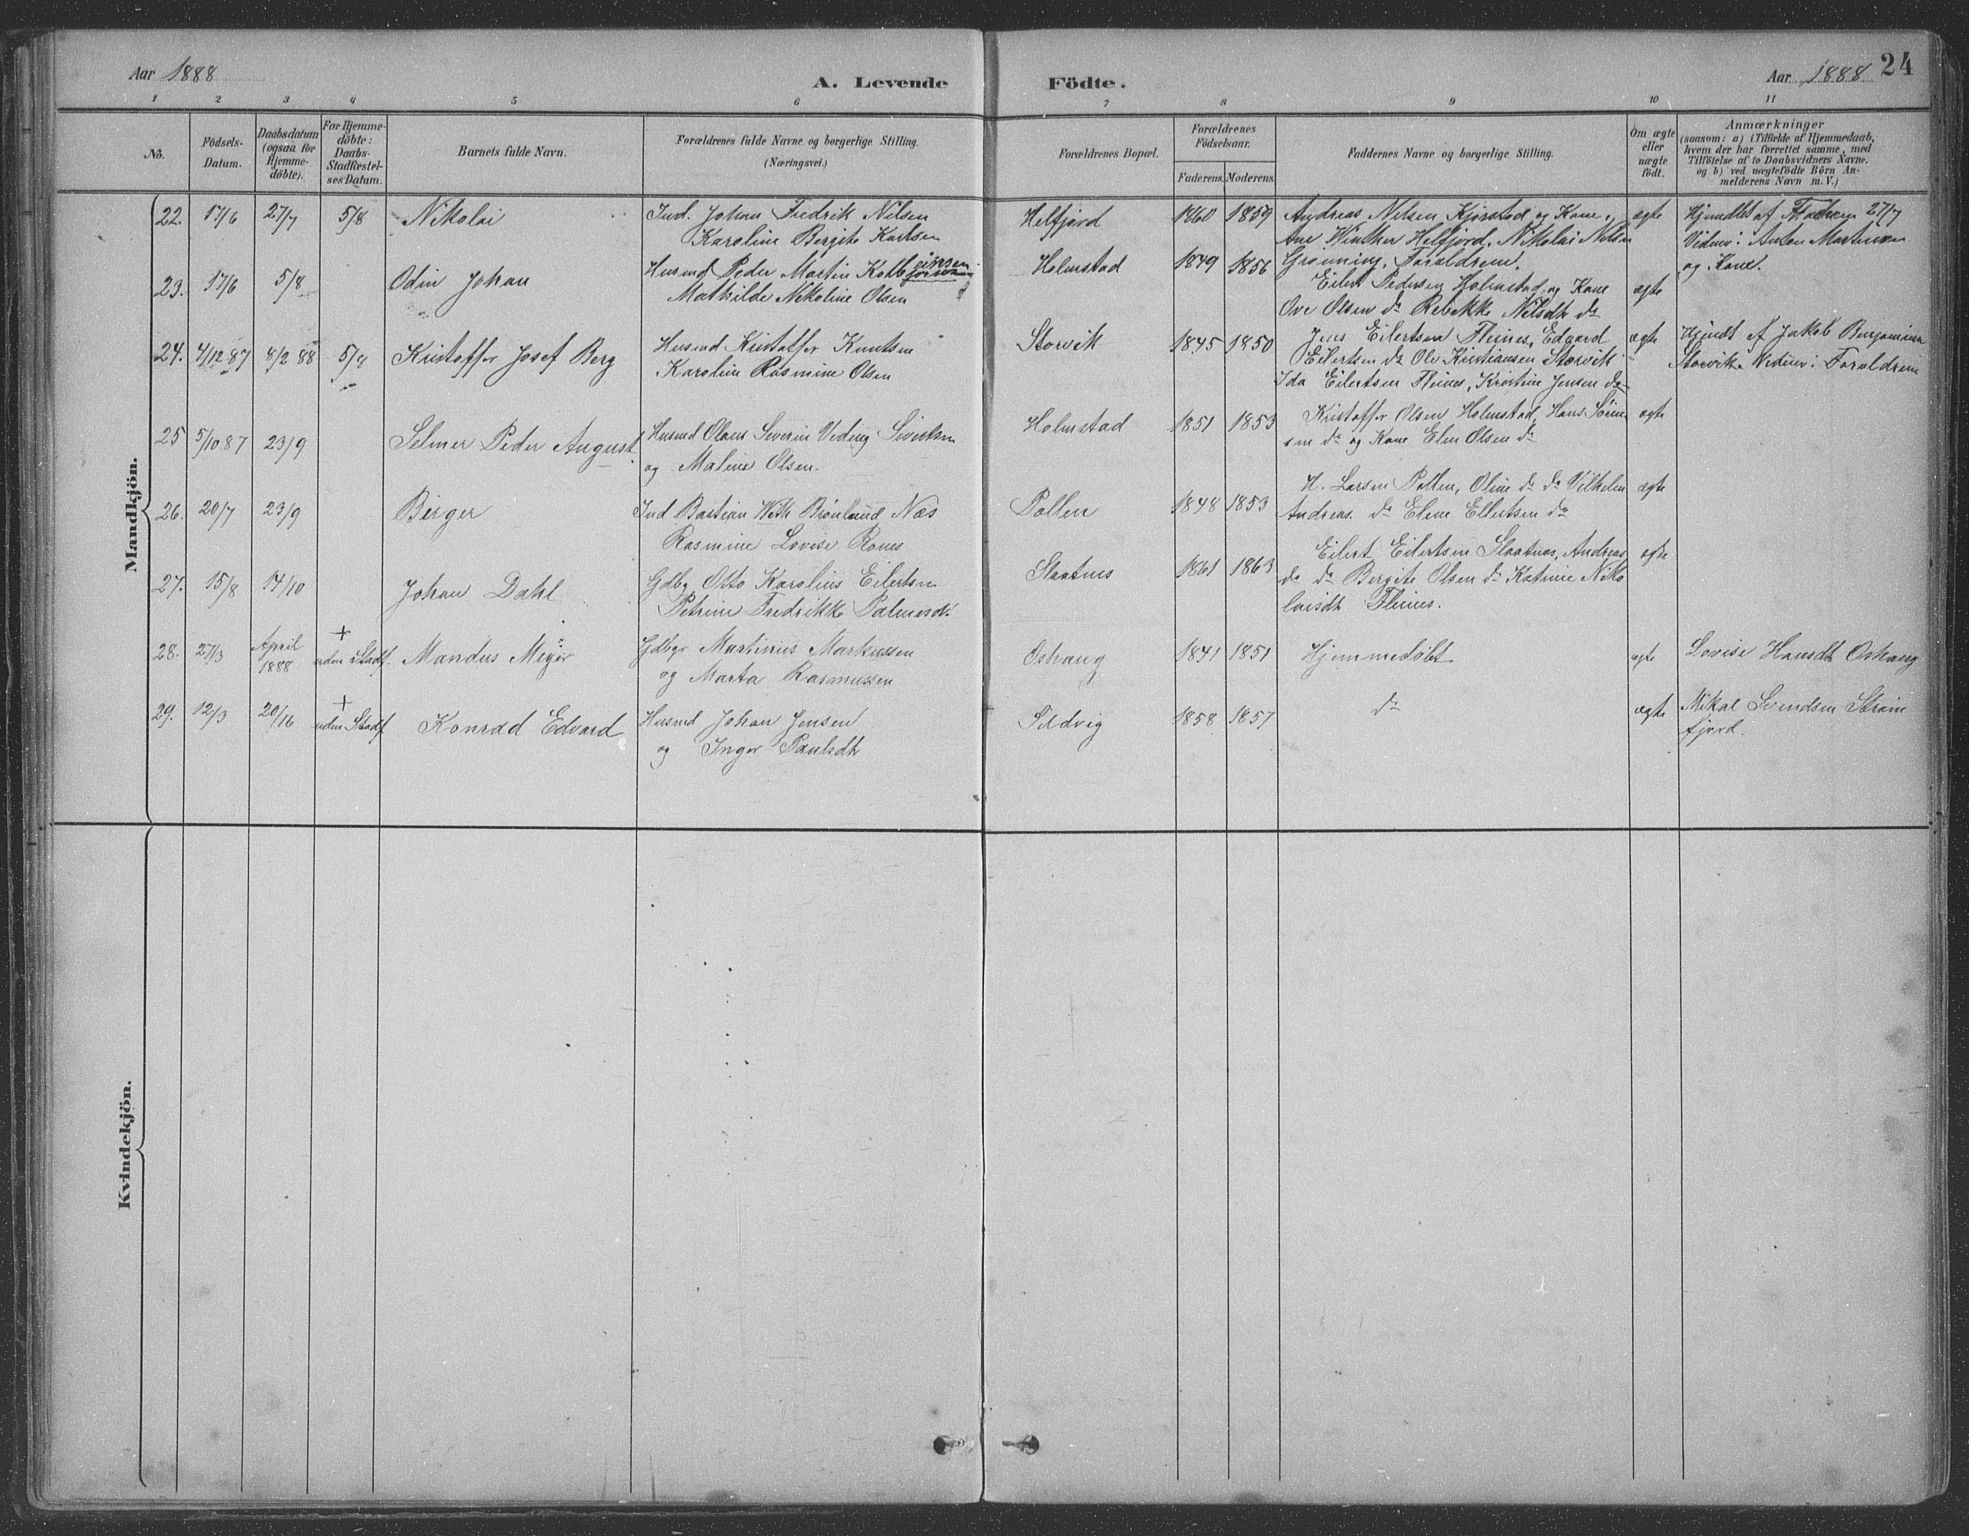 Aar 1888
A. Levende
Födte.
Aar 1888 24
1 2 3 4 5 6 7 8 9 10 11
No.
Födsels-Datum.
Daabsdatum (ogsaa for Hjemme-döbte).
For Hjemme-döbte: Daabs-Stadfæstel-ses Datum.
Barnets fulde Navn.
Forældrenes fulde Navne og borgerlige Stilling.
(Næringsvei.)
Forældrenes Bopæl.
Forældrenes Födselsaar.
Faderens. Moderens.
Faddernes Navne og borgerlige Stilling.
Om ægte eller uægte födt.
Anmærkninger
(saasom: a) i Tilfælde af Hjemmedaab,
hvem der har forrettet samme, med
Tilföielse af to Daabsvidners Navne.
og b) ved uægtefödte Börn An-
melderens Navn m. V.)
Mandkjön.
22. 17/6 27/7 5/8 Nikolai Ind. Johan Fredrik Nilsen
Karoline Bergite Karlsen
Helfjord 1860 1859 Andreas Nilsen Kjørstad og Kone,
Ane Winther Helfjord, Nikolai Nilsen
Grønning, Forældrene.
ægte Hjmdbt af Faderen 27/7
Vidner: Anton Martinsen
og Kone.
23. 17/6 5/8 Odin Johan Husmd Peder Martin Kolbjørnsen
Mathilde Nikoline Olsen
Holmstad 1849 1856 Eilert Pedersen Holmstad og Kone
Ove Olsen do Rebekke Nilsdt do
ægte
24. 4/12 87 8/2 88 5/8 Kristoffer Josef Berg Husmd Kristoffer Knutsen
Karoline Rasmine Olsen
Storvik 1845 1850 Jens Eilertsen Fleines, Edvard
Eilertsen do Ole Kristiansen Storvik
Ida Eilertsen Fleines, Kristine Jensen do
ægte Hjmdt af Jakob Benjaminsen
Storvik Vidner: Forældrene
25 5/10 87 23/9 Selmer Peder August Husmd Olaus Severin Veding Sivertsen
og Maline Olsen.
Holmstad 1851 1853 Kristoffer Olsen Holmstad, Hans Søren
sen do og Kone Elen Olsen do
ægte
26. 20/7 23/9 Birger Ind Bastian With Brønlund Næs
Rasmine Lovise Rones
Pollen 1848 1853 H. Larsen Pollen, Oline do do Vilhelm
Andreas. do Elene Ellertsen do
ægte
27. 15/8 14/10 Johan Dahl Gdbg Otto Karolius Eilertsen
Petrine Fredrikke
Slaatnes 1861 1863 Eilert Eilertsen Slaatnes, Andreas
do do Bergite Olsen do Katrine Niko
laisdt Fleines.
ægte
28. 27/3 April 1888 + uden Stadf. Mandus Meyer Gdbgr Martinus Markussen
og Marta Rasmussen
Oshaug 1841 1851 Hjemmedøbt ægte Lovise Hansdt Oshaug
29. 12/3 20/16 + uden Stadf Konrad Edvard Husmd Johan Jensen
og Inger Paulsdt
Sildvig 1858 1857 do ægte Mikal Svendsen Strøm
fjord.
Kvindekjön.